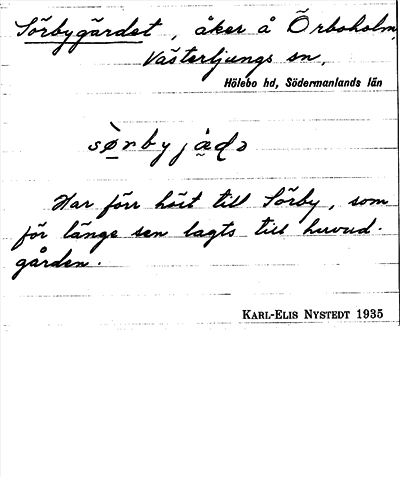 Sörbygärdet, åker å Örboholm,
Västerljungs sn,
Hölebo hd, Södermanlands län
Har förr hört till Sörby, som
för länge sen lagts till huvud-
gården.
KARL-ELIS NYSTEDT 1935